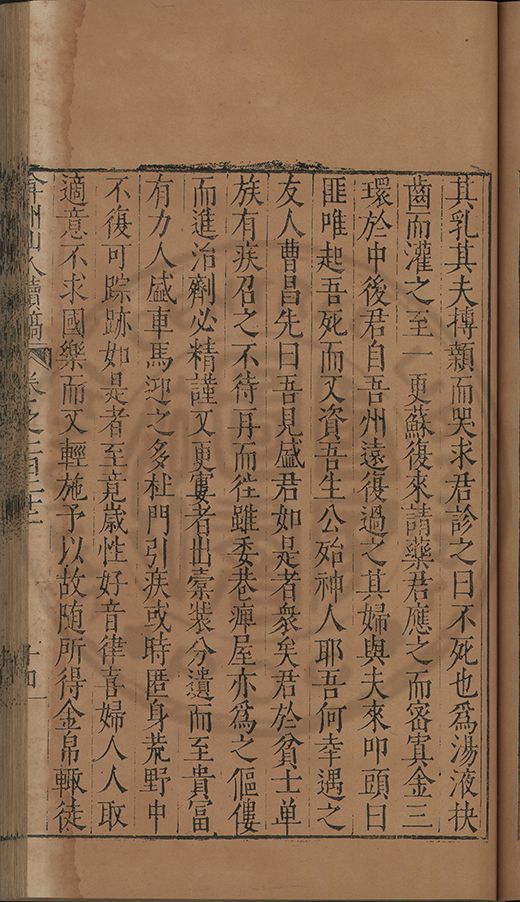 其乳其夫搏顙而哭求君診之曰不死也爲湯液抉
齒而灌之至一更蘇復來請藥君應之而密寘金三
環於中後君自吾州遠復過之其婦與夫來叩頭曰
匪唯起吾死而又資吾生公殆神人耶吾何幸遇之
友人曹昌先曰吾見盛君如是者衆矣君於貧士单
族有疾召之不待再而徃雖委巷痺屋亦爲之傴僂
而進治劑必精謹又更寠者出槖裝分遺而至貴富
有力人盛車馬迎之多杜門引疾或時匿身荒野中
不復可踪跡如是者至竟歲性好音律喜婦人人取
適意不求國樂而又輕施予以故随所得金帛輙徒
弇州山人續稿 卷之一百三十三 十四